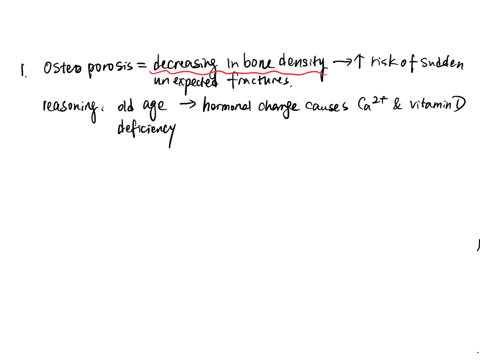 1. Osteoporosis = decreasing in bone density → ↑ risk of sudden
unexpected fractures.
reasoning: old age → hormonal change causes Ca²⁺ & vitamin D
deficiency